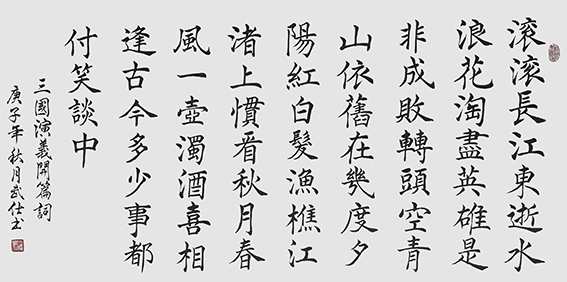 滚滚長江東逝水
浪花淘盡英雄是
非成敗轉頭空青
山依舊在幾度夕
陽紅白髮漁樵江
渚上慣看秋月春
風一壺濁酒喜相
逢古今多少事都
付笑談中
三國演義開篇詞
庚子年秋月武仕书